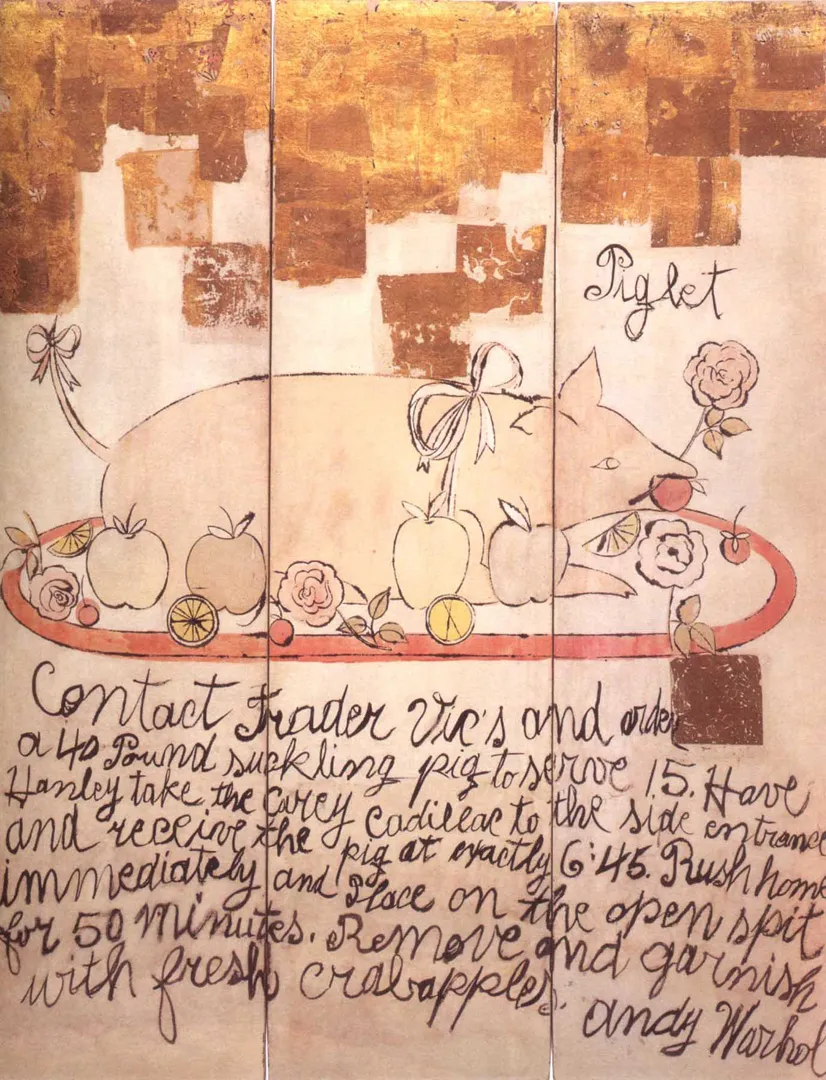 Piglet
Contact Trader Vic's and order
a 40 Pound suckling pig to serve 15. Have
Hanley take the Carey Cadillac to the side entrance
and receive the pig at exactly 6:45. Rush home
immediately and Place on the open spit
for 50 minutes. Remove and garnish
with fresh crabapples.
Andy Warhol